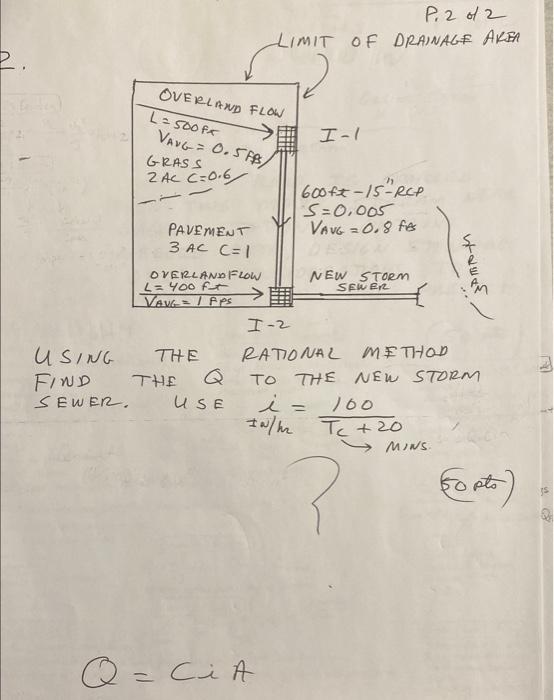 P. 2 of 2
LIMIT OF DRAINAGE AREA
2.
OVERLAND FLOW
L = 500 Ft
VAVG = 0.5 fps
GRASS
2 AC C=0.6
I-1
600 ft - 15" RCP
S = 0.005
VAVG = 0.8 fps
PAVEMENT
3 AC C=1
OVERLAND FLOW
L = 400 ft
VAVG = 1 FPS
NEW STORM
SEWER
STREAM
I-2
USING THE RATIONAL METHOD
FIND THE Q TO THE NEW STORM
SEWER. USE i = 100
IN/hr TC + 20
→ MINS.
?
(50 pts)
Q = CiA